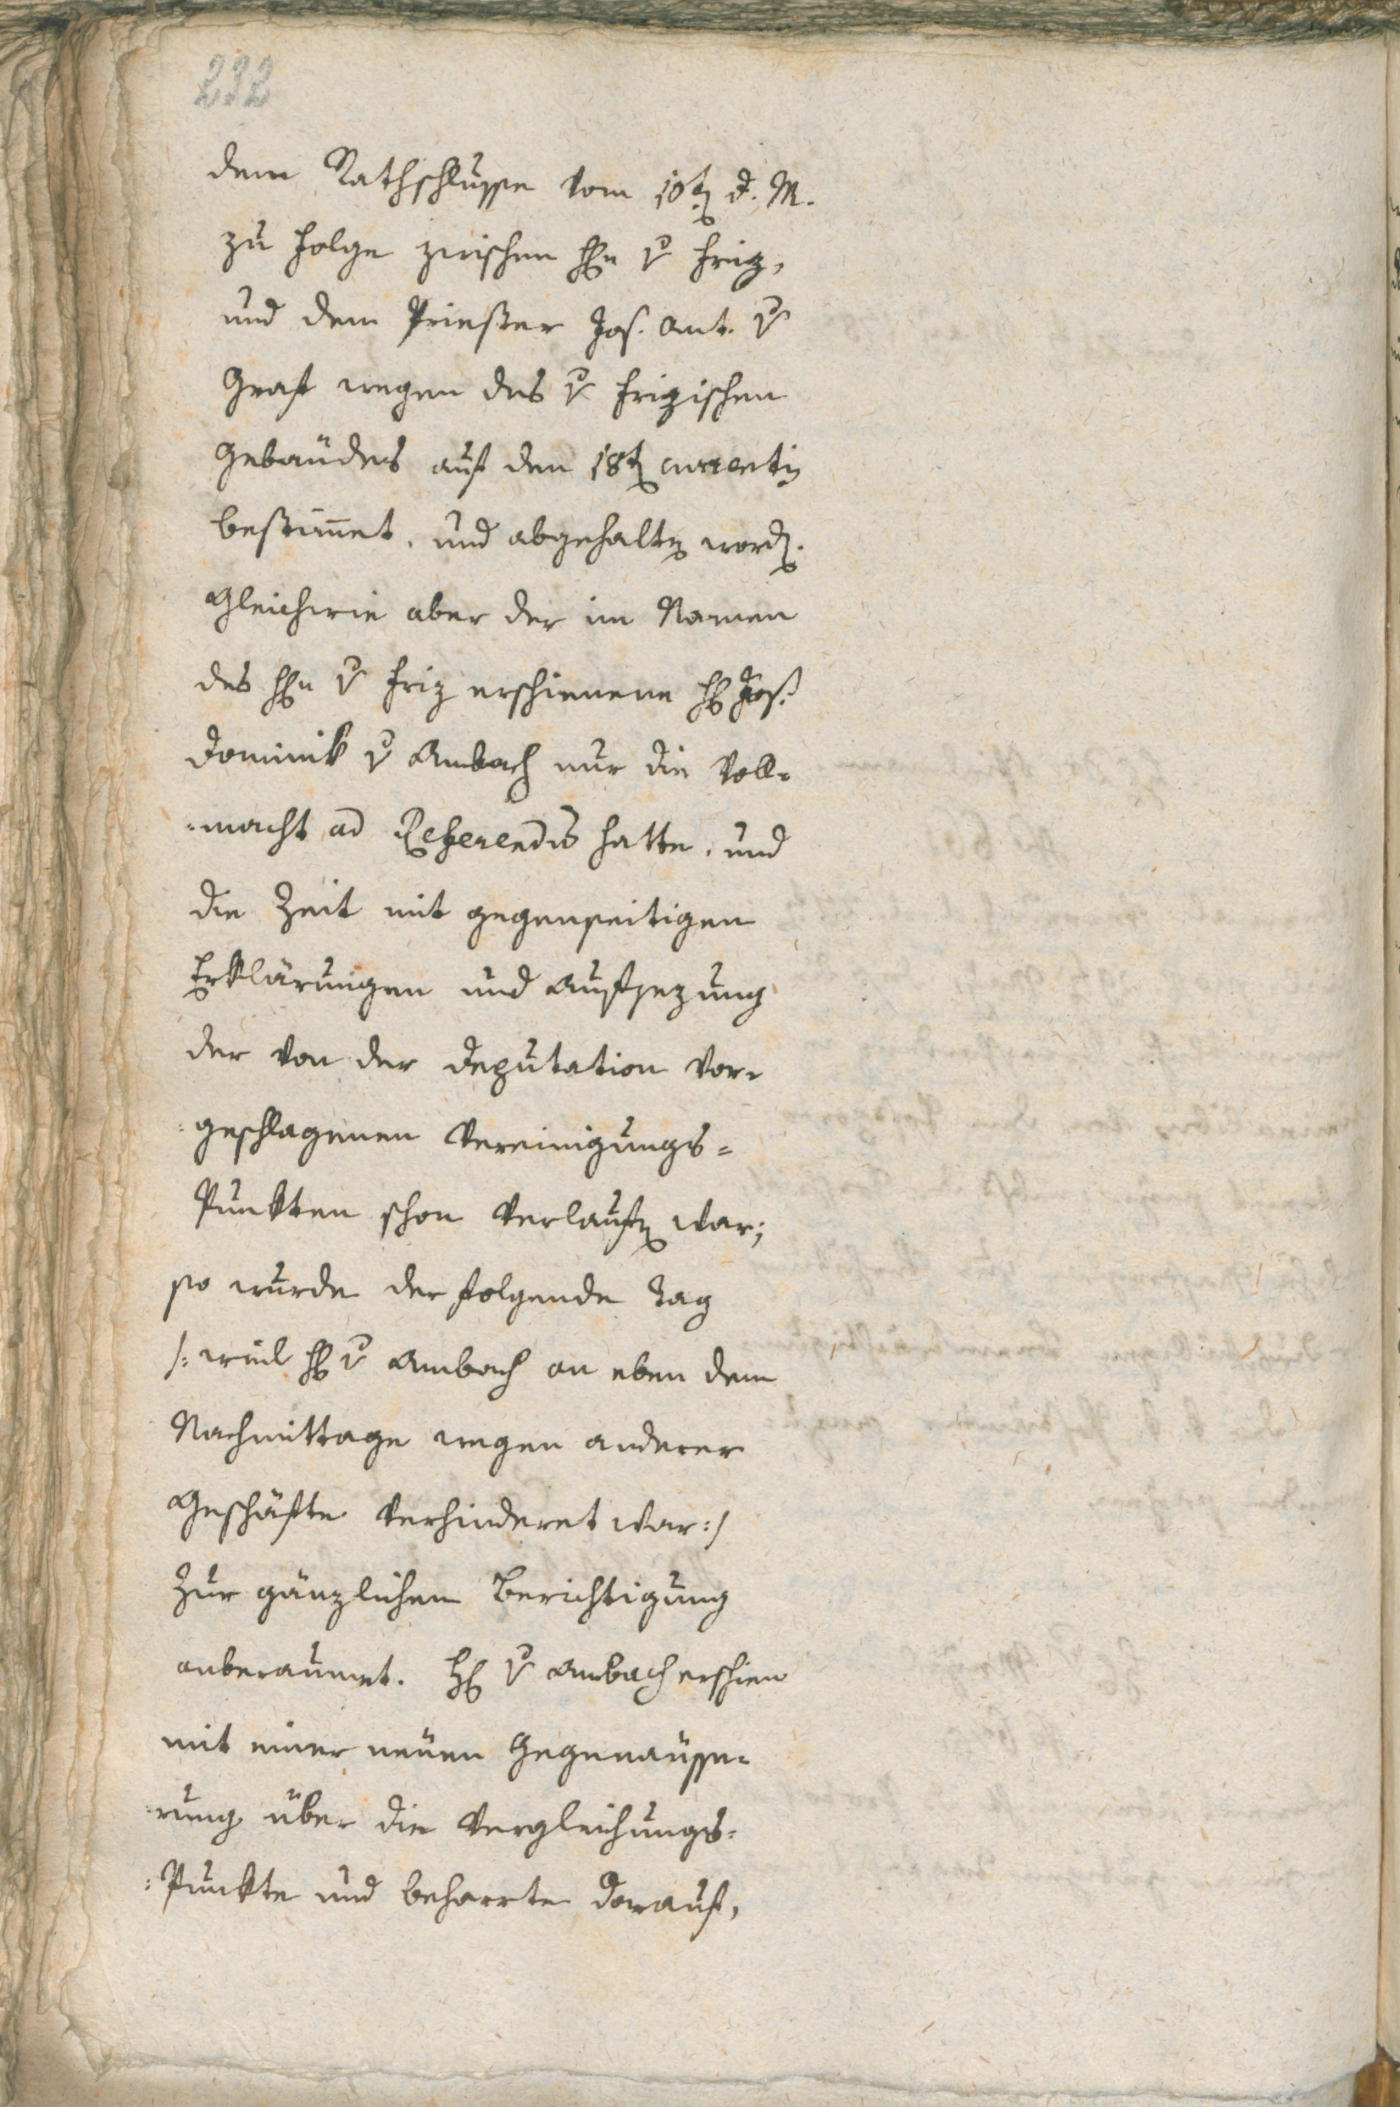 232
dem Rathschlusse vom 10t[en] d. M.
zu folge zwischen H[er]rn v Friz,
und dem Priester Jos. Ant. v
Graf wegen des v Frizischen
Gebäudes auf den 18t[en] currentis
bestim̅et, und abgehalt[en] word[en].
Gleichwie aber der im Namen
des H[er]rn v Friz erschienene H[err] Jos.
Dominik v Ambach nur die Voll=
=macht ad Referendu[m] hatte, und
die Zeit mit gegenseitigen
Erklärungen und Aufsezung
der von der Deputation vor=
=geschlagenen Vereinigungs=
Punkten schon verlauf[en] war;
so wurde der folgende Tag
/: weil H[err] v Ambach an eben dem
Nachmittage wegen anderer
Geschäfte verhinderet war :/
zur gänzlichen Berichtigung
anberaumet. H[err] v Ambach erschien
mit einer neuen Gegenäusse=
=rung über die Vergleichungs=
=Punkte und beharrte darauf,